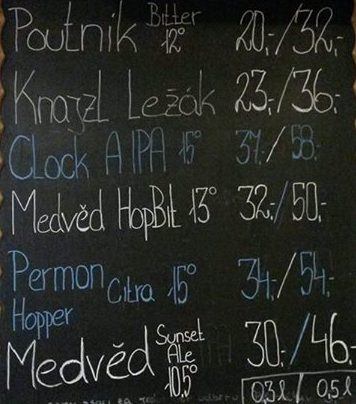 Poutník Bitter 12° 20,-/32,-
Knajzl Ležák 23,-/36,-
CLock AIPA 15° 37,-/58,-
Medvěd HopBit 13° 32,-/50,-
Permon Hopper Citra 15° 34,-/54,-
Medvěd Sunset Ale 10,5° 30,-/46,-
0,3 l / 0,5 l